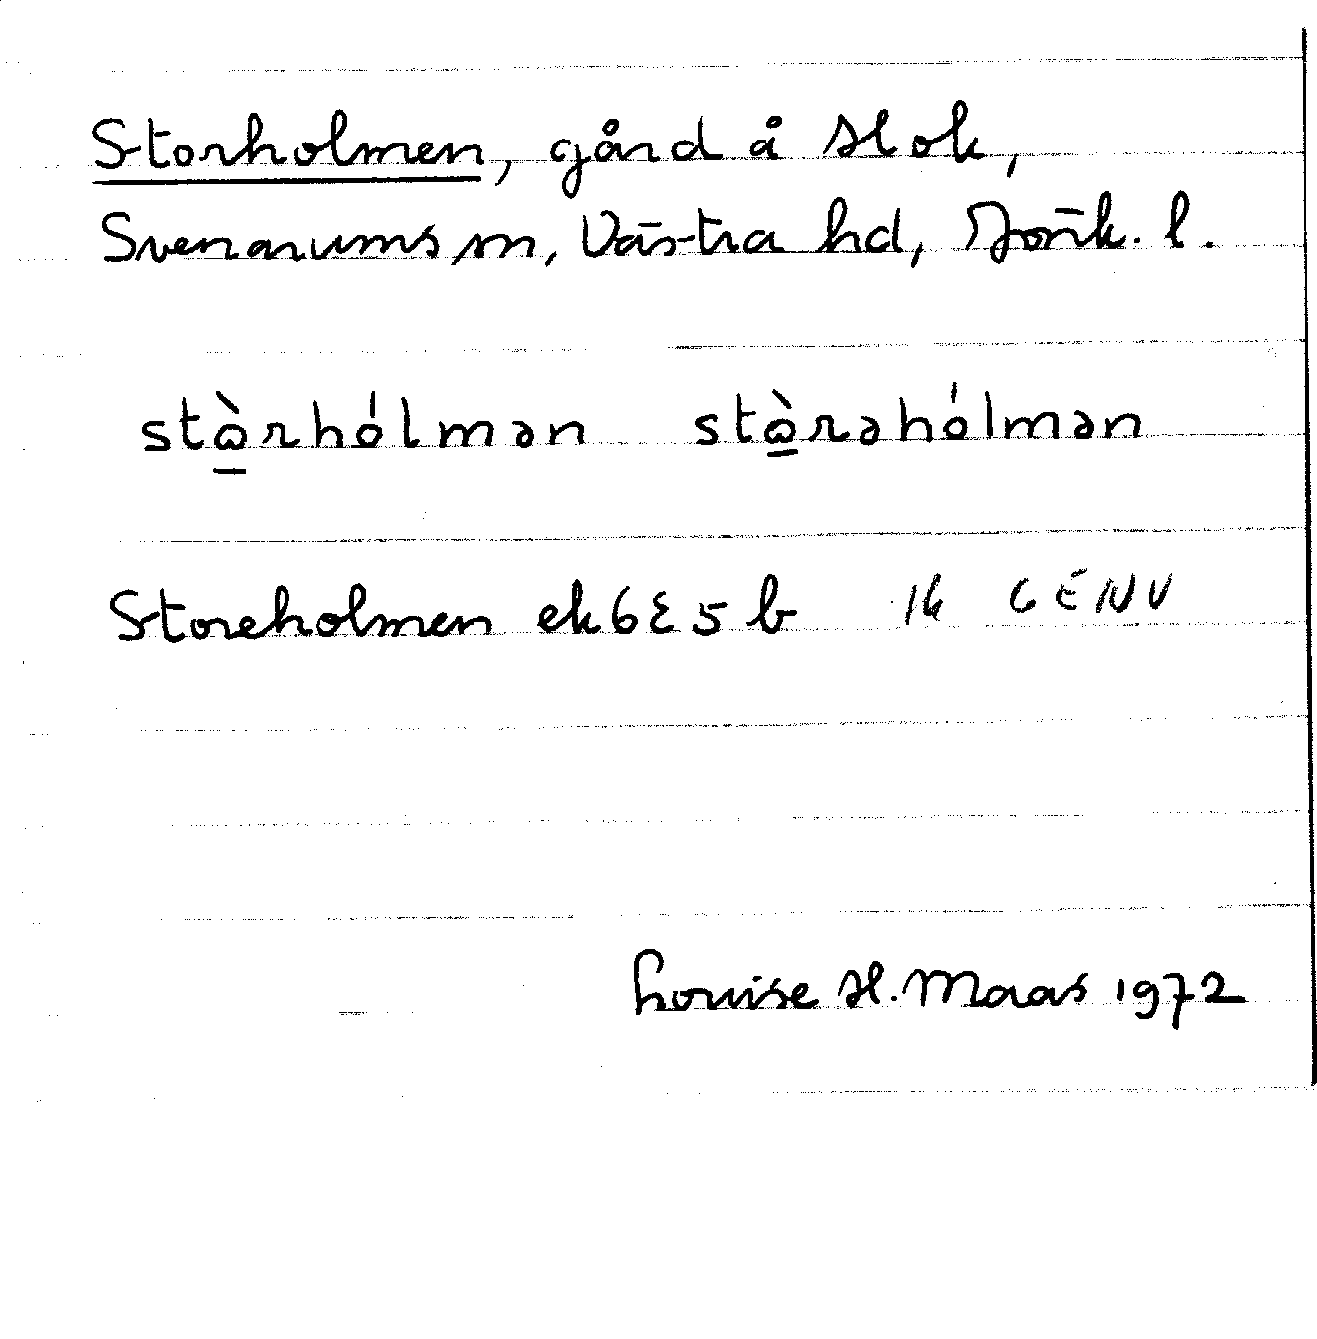 Storholmen, gård å Hok,
Svenarums sn, Västra hd, Jönk. l.
stɷ̠̀rhólmən stɷ̠̀rəhólmən
Storeholmen ek 6E5b 16 GENV
Louise H. Maas 1972